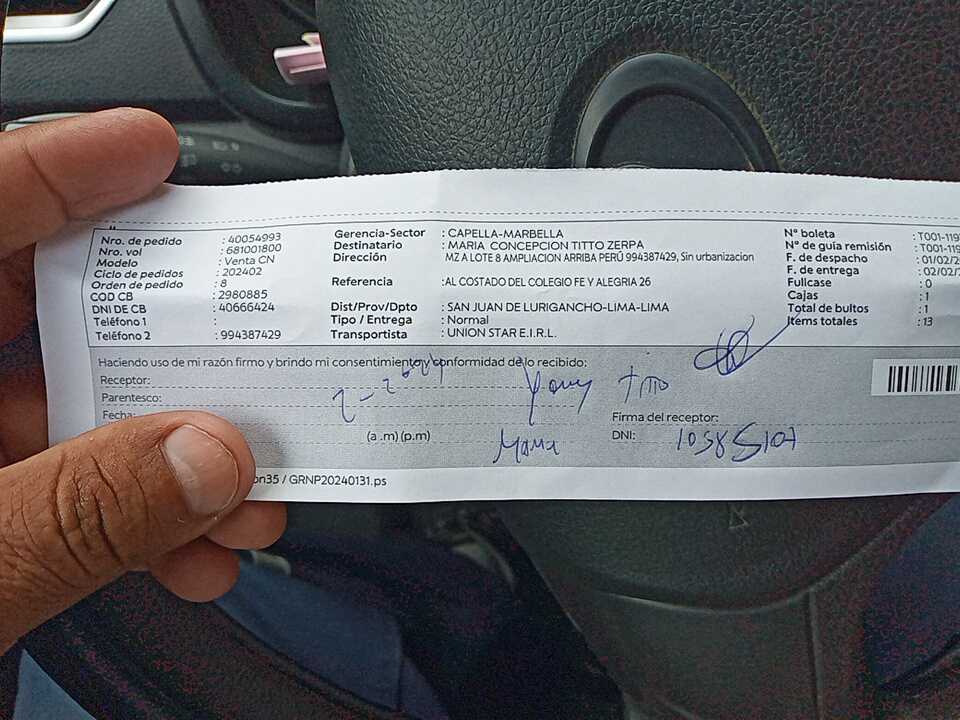 Nro. de pedido : 40054993
Nro. vol : 681001800
Modelo : Venta CN
Ciclo de pedidos : 202402
Orden de pedido : 8
COD CB : 2980885
DNI DE CB : 40666424
Teléfono 1 :
Teléfono 2 : 994387429
Gerencia-Sector : CAPELLA-MARBELLA
Destinatario : MARIA CONCEPCION TITTO ZERPA
Dirección MZ A LOTE 8 AMPLIACION ARRIBA PERÚ 994387429, Sin urbanizacion
Referencia : AL COSTADO DEL COLEGIO FE Y ALEGRIA 26
Dist/Prov/Dpto : SAN JUAN DE LURIGANCHO-LIMA-LIMA
Tipo / Entrega : Normal
Transportista : UNION STAR E.I.R.L.
N° boleta : T001-119
N° de guía remisión : T001-119
F. de despacho : 01/02/2
F. de entrega : 02/02/2
Fullcase : 0
Cajas : 1
Total de bultos : 1
Items totales : 13
Haciendo uso de mi razón firmo y brindo mi consentimiento y conformidad de lo recibido:
Receptor: Titto
Parentesco:
Fecha: 2-2024
(a .m) (p.m)
Firma del receptor:
DNI: 10585107
on35 / GRNP20240131.ps